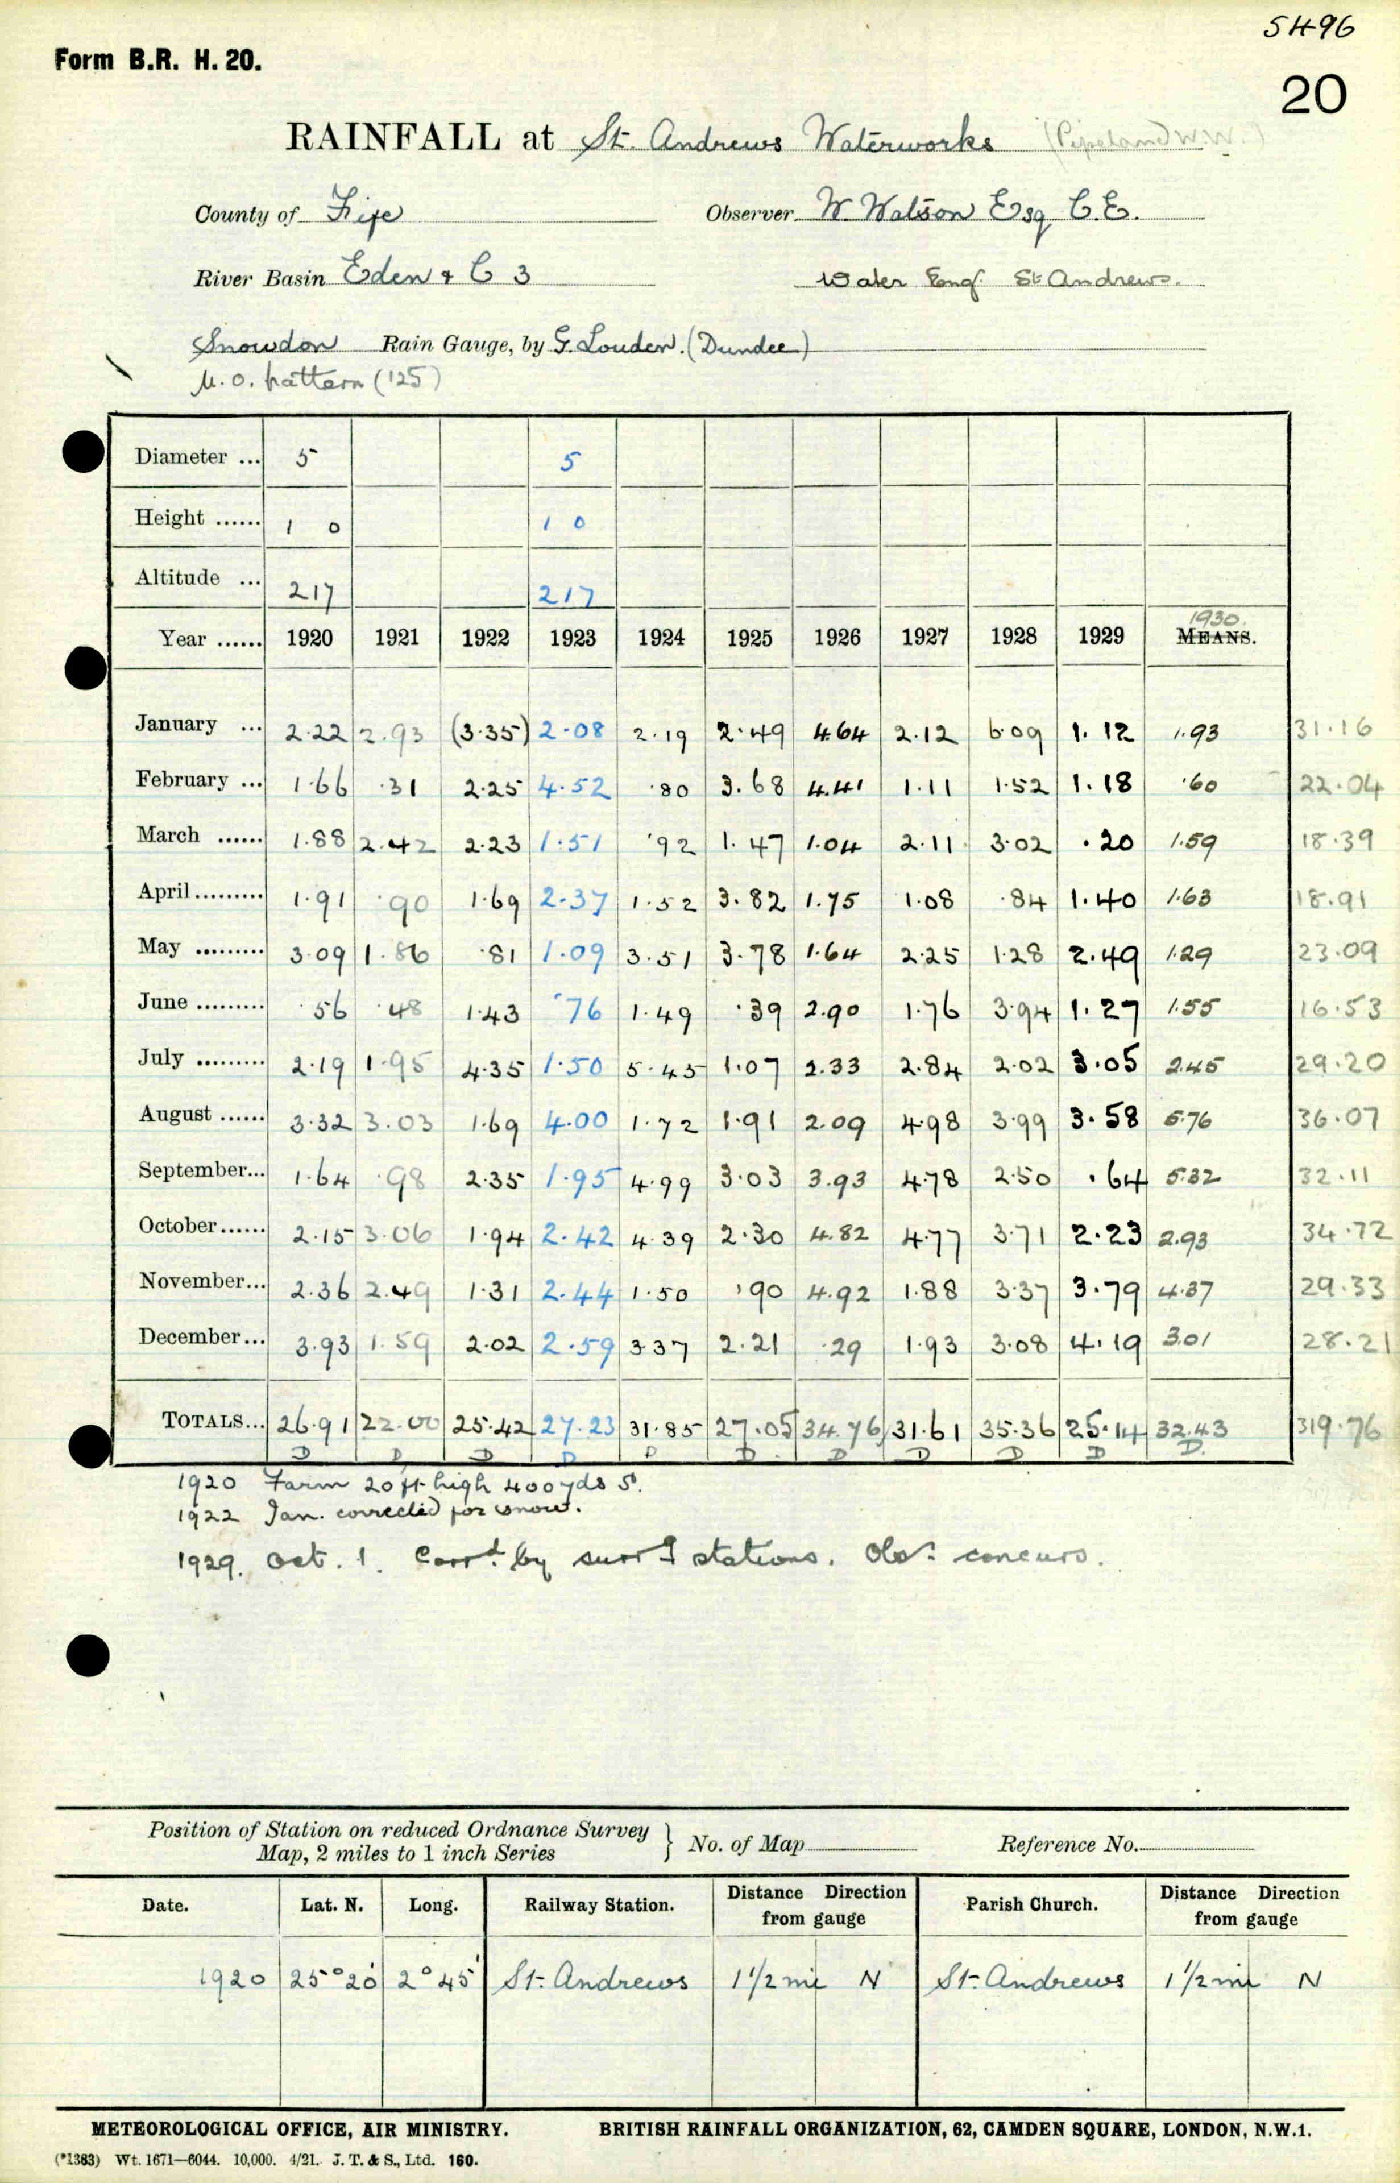 5496
Form B.R. H. 20.
20
RAINFALL at St. Andrews Waterworks (Pipeland W.W.)
County of Fife Observer W. Watson Esq C.E.
River Basin Eden & C 3 Water Eng. St Andrews.
Snowdon Rain Gauge, by G. Louden. (Dundee)
M.O. pattern ('25)
Diameter ... 5 5
Height ...... 1 0 1 0
Altitude ... 217 217
1930.
Year ...... 1920 1921 1922 1923 1924 1925 1926 1927 1928 1929 MEANS.
January ... 2.22 2.93 (3.35) 2.08 2.19 2.49 4.64 2.12 6.09 1.12 1.93 31.16
February ... 1.66 .31 2.25 4.52 .80 3.68 4.41 1.11 1.52 1.18 .60 22.04
March ...... 1.88 2.42 2.23 1.51 .92 1.47 1.04 2.11 3.02 .20 1.59 18.39
April ......... 1.91 .90 1.69 2.37 1.52 3.82 1.75 1.08 .84 1.40 1.63 18.91
May ......... 3.09 1.86 .81 1.09 3.51 3.78 1.64 2.25 1.28 2.49 1.29 23.09
June ......... .56 .48 1.43 .76 1.49 .39 2.90 1.76 3.94 1.27 1.55 16.53
July ......... 2.19 1.95 4.35 1.50 5.45 1.07 2.33 2.84 2.02 3.05 2.45 29.20
August ...... 3.32 3.03 1.69 4.00 1.72 1.91 2.09 4.98 3.99 3.58 5.76 36.07
September... 1.64 .98 2.35 1.95 4.99 3.03 3.93 4.78 2.50 .64 5.32 32.11
October...... 2.15 3.06 1.94 2.42 4.39 2.30 4.82 4.77 3.71 2.23 2.93 34.72
November... 2.36 2.49 1.31 2.44 1.50 .90 4.92 1.88 3.37 3.79 4.37 29.33
December... 3.93 1.59 2.02 2.59 3.37 2.21 .29 1.93 3.08 4.19 3.01 28.21
TOTALS... 26.91 22.00 25.42 27.23 31.85 27.05 34.76 31.61 35.36 25.14 32.43 319.76
D D D D D D D D D D D.
1920 Farm 20 ft high 400yds S.
1922 Jan. corrected for snow.
1929. Oct. 1. Corrd. by surrg stations. Obs. concurs.
Position of Station on reduced Ordnance Survey
Map, 2 miles to 1 inch Series } No. of Map Reference No.
Date. Lat. N. Long. Railway Station. Distance Direction from gauge Parish Church. Distance Direction from gauge
1920 25°20' 2°45' St. Andrews 1 1/2 mi N St. Andrews 1 1/2 mi N
METEOROLOGICAL OFFICE, AIR MINISTRY. BRITISH RAINFALL ORGANIZATION, 62, CAMDEN SQUARE, LONDON, N.W.1.
(*1383) Wt. 1671—6044. 10,000. 4/21. J. T. & S., Ltd. 160.